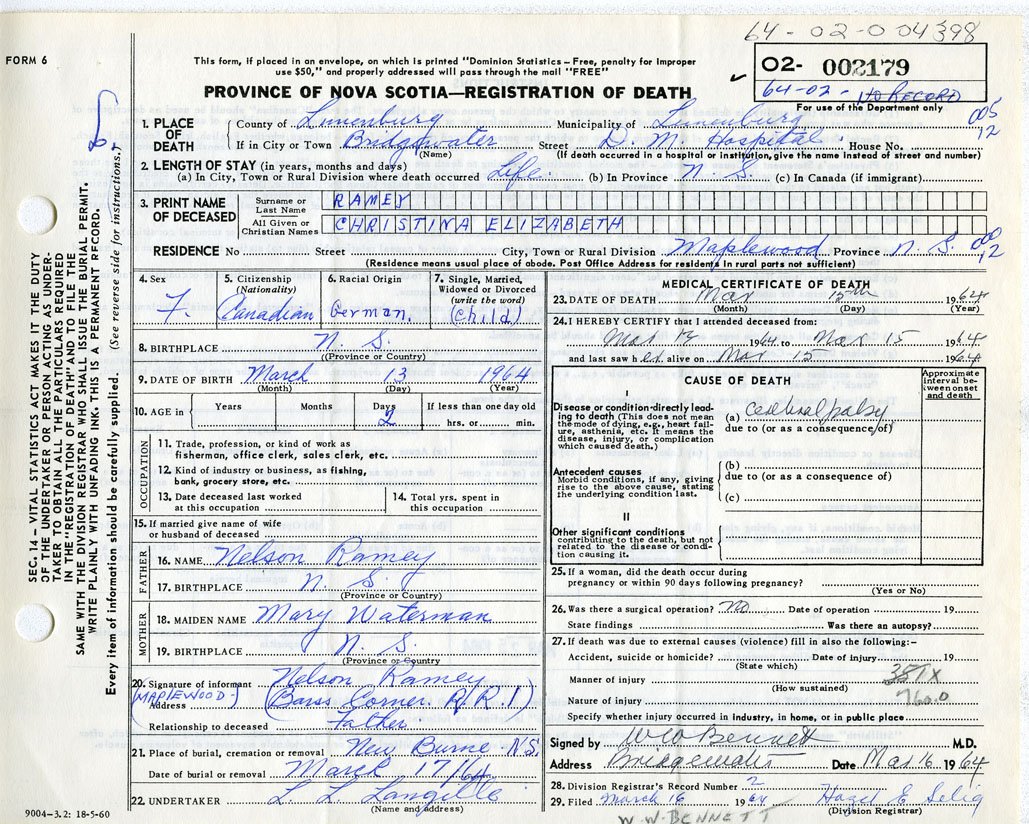 64-02-004398
FORM 6
This form, if placed in an envelope, on which is printed "Dominion Statistics – Free, penalty for improper
use $50," and properly addressed will pass through the mail "FREE"
PROVINCE OF NOVA SCOTIA—REGISTRATION OF DEATH
02- 002179
64-02- No RECORD
For use of the Department only
005
12
1. PLACE OF DEATH
County of Lunenburg Municipality of Lunenburg
If in City or Town Bridgewater Street D. M. Hospital House No.
(Name) (If death occurred in a hospital or institution, give the name instead of street and number)
2. LENGTH OF STAY (in years, months and days)
(a) In City, Town or Rural Division where death occurred Life. (b) In Province N. S. (c) In Canada (if immigrant)
3. PRINT NAME OF DECEASED
Surname or Last Name RAMEY
All Given or Christian Names CHRISTINA ELIZABETH
RESIDENCE No Street City, Town or Rural Division Maplewood Province N. S.
000
12
(Residence means usual place of abode. Post Office Address for residents in rural parts not sufficient)
4. Sex
F.
5. Citizenship
(Nationality)
Canadian
6. Racial Origin
German.
7. Single, Married,
Widowed or Divorced
(write the word)
(Child)
8. BIRTHPLACE N. S.
(Province or Country)
9. DATE OF BIRTH March 13 1964
(Month) (Day) (Year)
10. AGE in
Years Months Days If less than one day old
2 hrs. or min.
OCCUPATION
11. Trade, profession, or kind of work as
fisherman, office clerk, sales clerk, etc.
12. Kind of industry or business, as fishing,
bank, grocery store, etc.
13. Date deceased last worked
at this occupation
14. Total yrs. spent in
this occupation
15. If married give name of wife
or husband of deceased
FATHER
16. NAME Nelson Ramey
17. BIRTHPLACE N. S.
(Province or Country)
MOTHER
18. MAIDEN NAME Mary Waterman
19. BIRTHPLACE N. S.
(Province or Country)
20. Signature of informant Nelson Ramey
(MAPLEWOOD-)
Address (Barss Corner. R. R. 1)
Relationship to deceased Father
21. Place of burial, cremation or removal New Burne N.S.
Date of burial or removal March 17/64
22. UNDERTAKER L. L. Langille
(Name and address)
9004-3.2: 18-5-60
MEDICAL CERTIFICATE OF DEATH
23. DATE OF DEATH Mar 15th 1964
(Month) (Day) (Year)
24. I HEREBY CERTIFY that I attended deceased from:
Mar 13 1964 to Mar 15 1964
and last saw her alive on Mar 15 1964
CAUSE OF DEATH
Approximate
interval be-
tween onset
and death
Disease or condition directly lead-
ing to death (This does not mean
the mode of dying, e.g., heart fail-
ure, asthenia, etc. It means the
disease, injury, or complication
which caused death.)
(a) Cerebral palsy
due to (or as a consequence of)
Antecedent causes
Morbid conditions, if any, giving
rise to the above cause, stating
the underlying condition last.
(b)
due to (or as a consequence of)
(c)
II
Other significant conditions
contributing to the death, but not
related to the disease or condi-
tion causing it.
25. If a woman, did the death occur during
pregnancy or within 90 days following pregnancy?
(Yes or No)
26. Was there a surgical operation? No Date of operation 19
State findings Was there an autopsy?
27. If death was due to external causes (violence) fill in also the following:–
Accident, suicide or homicide? Date of injury 19
(State which)
Manner of injury 351X
(How sustained)
760.0
Nature of injury
Specify whether injury occurred in industry, in home, or in public place
Signed by W W Bennett M.D.
Address Bridgewater Date Mar 16 1964
28. Division Registrar's Record Number 2
29. Filed March 16 1964 Hazel E Selig
(Division Registrar)
W. W. BENNETT
SEC. 14 – VITAL STATISTICS ACT MAKES IT THE DUTY
OF THE UNDERTAKER OR PERSON ACTING AS UNDER-
TAKER TO OBTAIN ALL THE PARTICULARS REQUIRED
IN THE "REGISTRATION OF DEATH" AND TO FILE THE
SAME WITH THE DIVISION REGISTRAR WHO SHALL ISSUE THE BURIAL PERMIT.
WRITE PLAINLY WITH UNFADING INK. THIS IS A PERMANENT RECORD.
Every item of information should be carefully supplied. (See reverse side for instructions.)